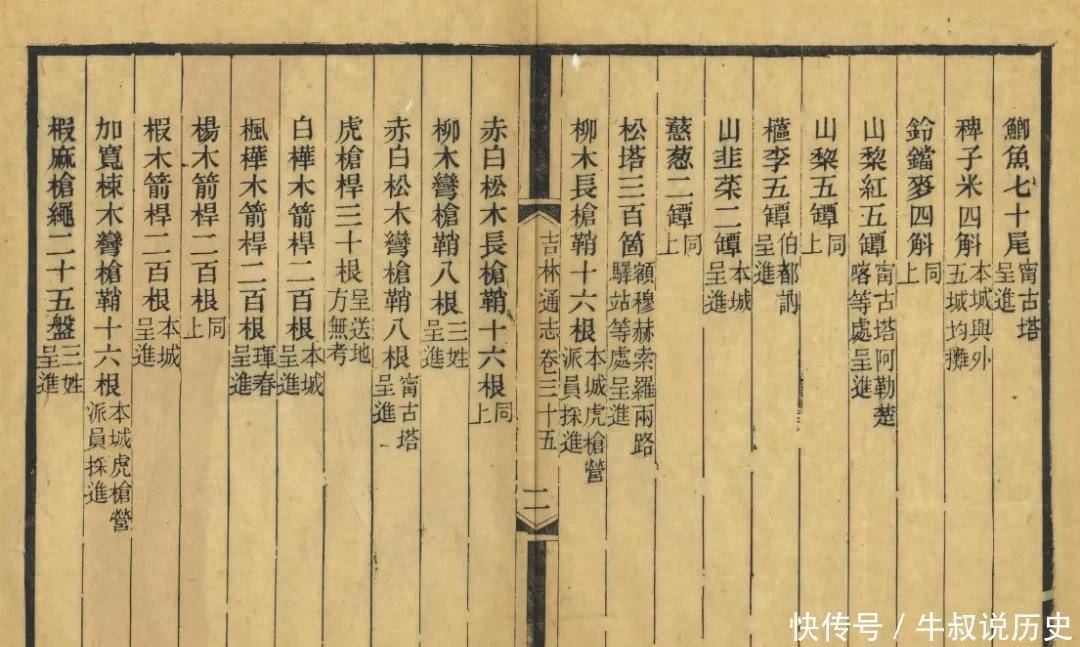 鯽魚七十尾甯古塔呈進
稗子米四斛本城與外五城均攤
鈴鐺麥四斛同上
山棃紅五罈甯古塔阿勒楚喀等處呈進
山棃五罈同上
櫙李五罈伯都訥呈進
山韭菜二罈本城呈進
薤葱二罈同上
松塔三百箇額穆赫索羅兩路驛站等處呈進
柳木長槍鞘十六根本城虎槍營派員採進
吉林通志卷三十五
二
赤白松木長槍鞘十六根同上
柳木彎槍鞘八根三姓呈進
赤白松木彎槍鞘八根甯古塔呈進
虎槍桿三十根呈送地方無考
白樺木箭桿二百根本城呈進
楓樺木箭桿二百根琿春呈進
楊木箭桿二百根同上
椵木箭桿二百根本城呈進
加寬楝木彎槍鞘十六根本城虎槍營派員採進
椵麻槍繩二十五盤三姓呈進
快传号 / 牛叔说历史